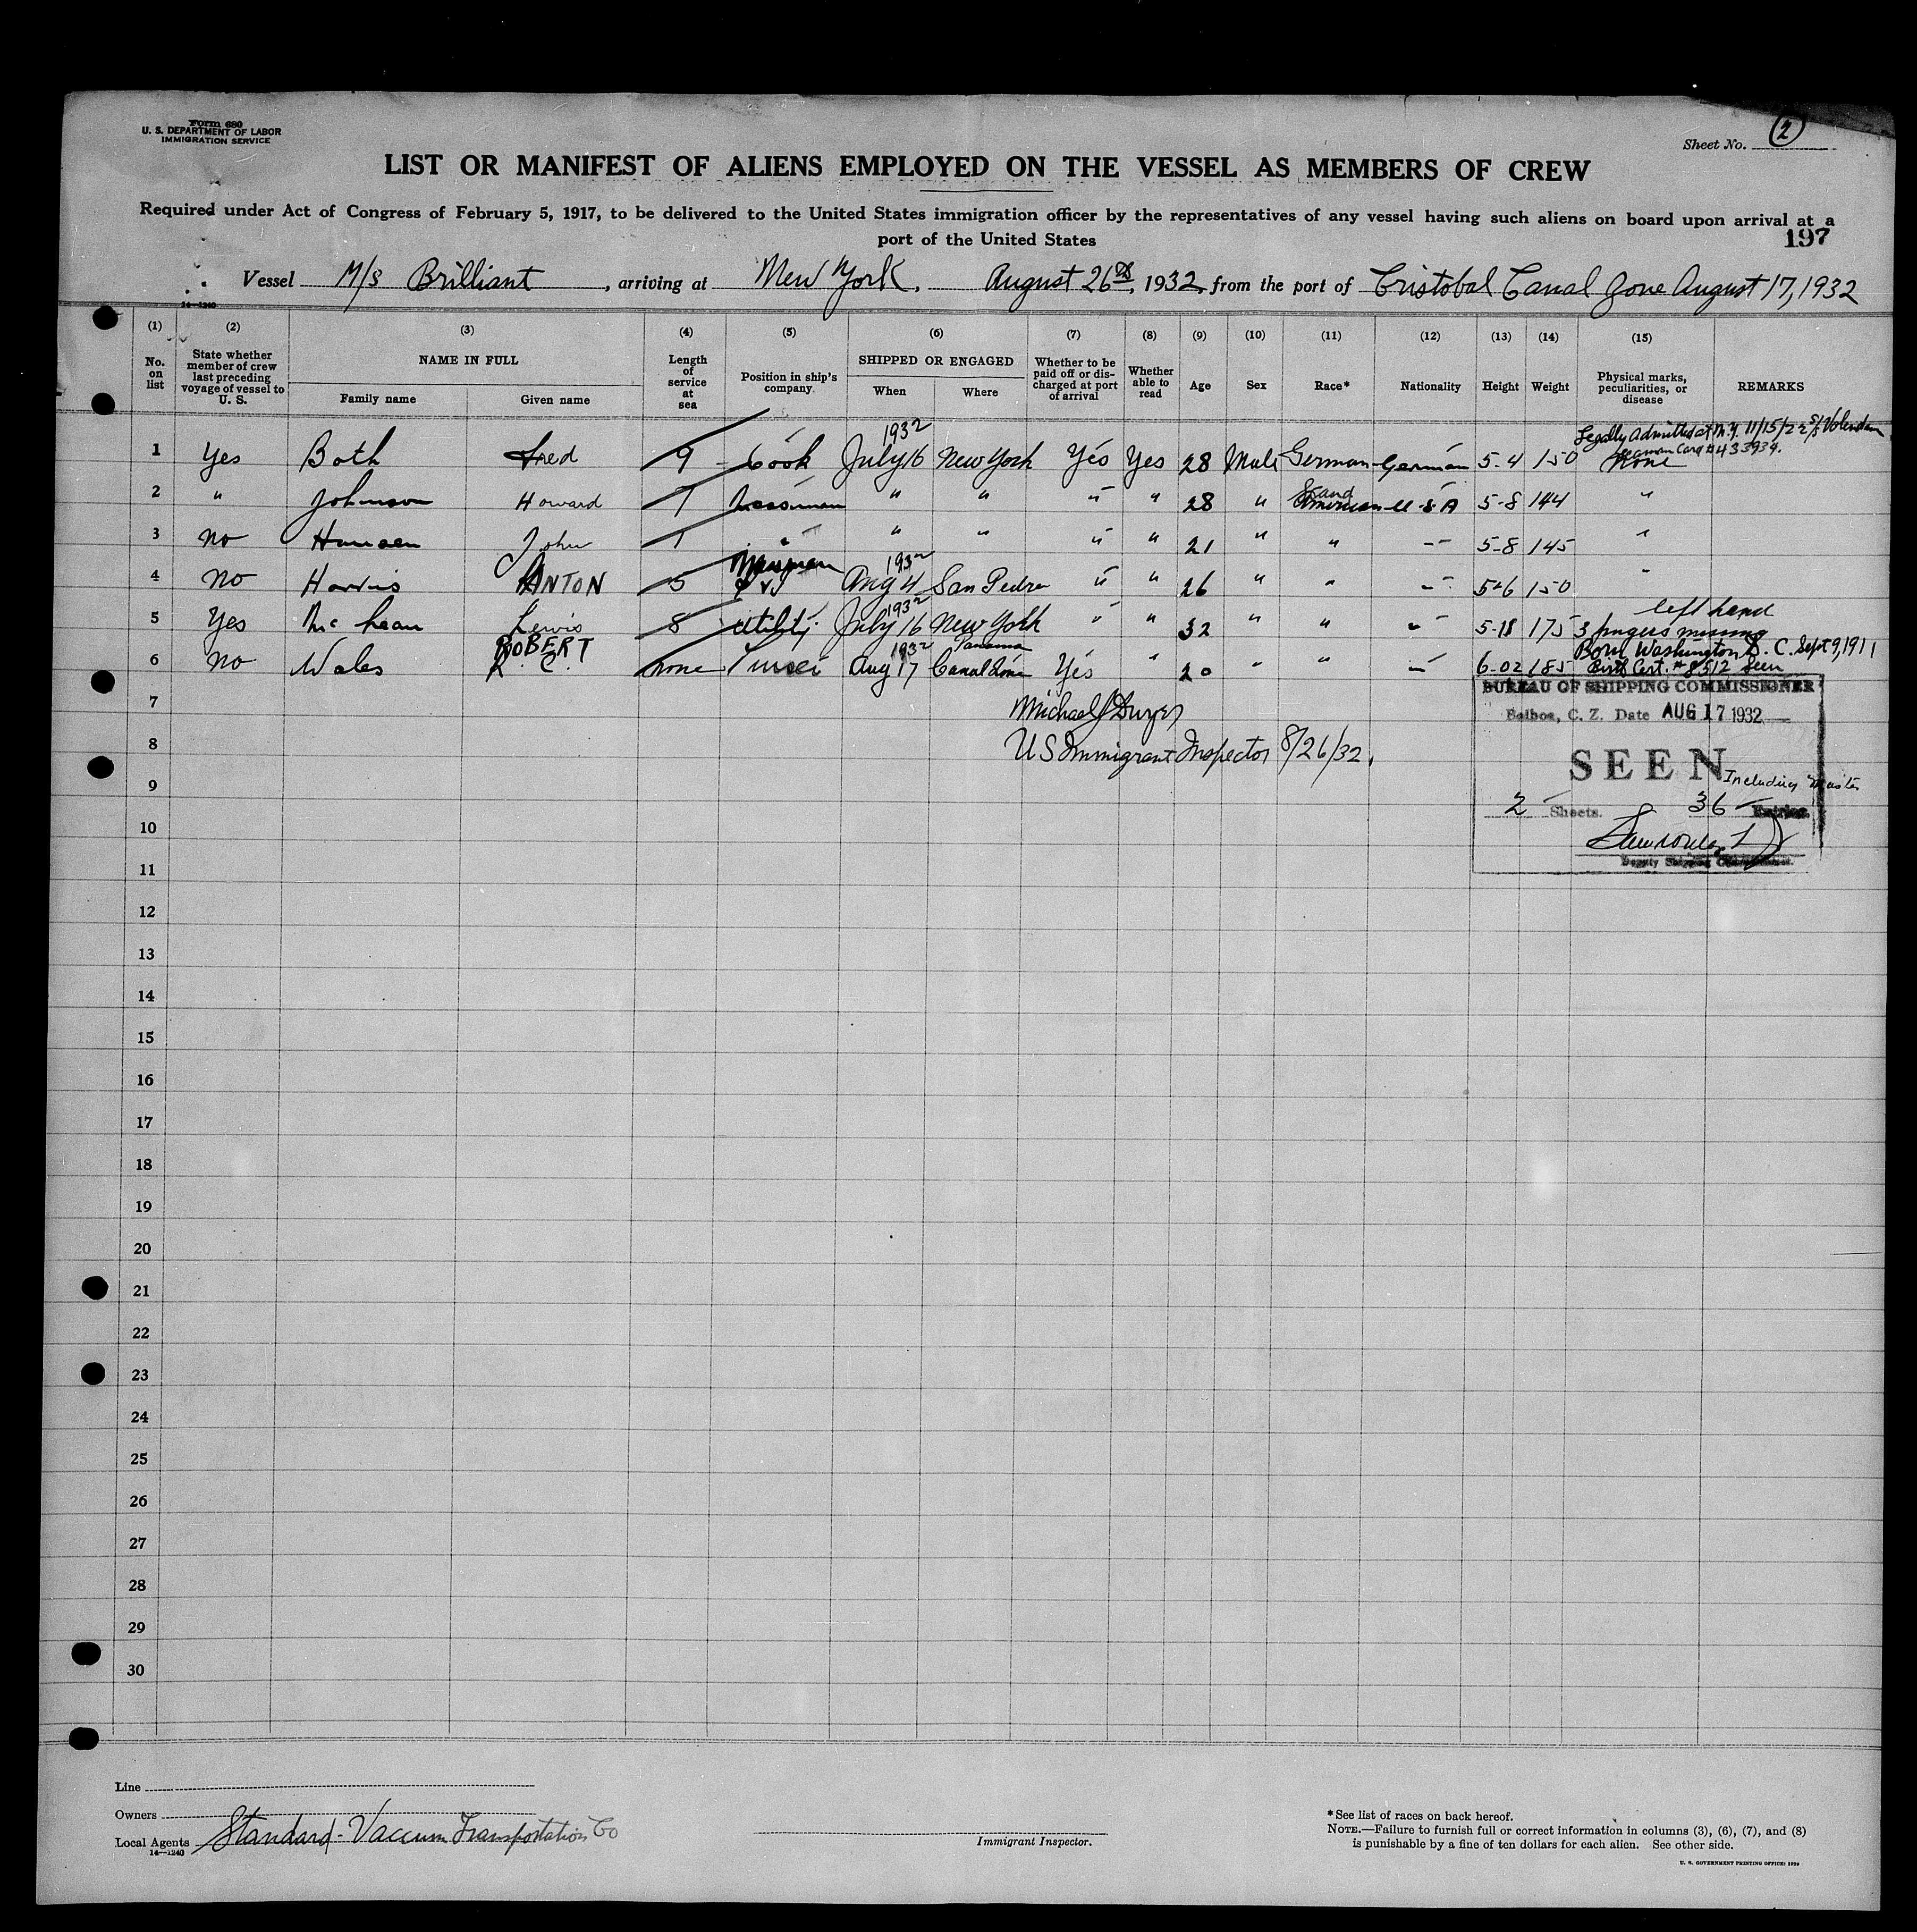 Form 680
U. S. DEPARTMENT OF LABOR
IMMIGRATION SERVICE
Sheet No. 2
LIST OR MANIFEST OF ALIENS EMPLOYED ON THE VESSEL AS MEMBERS OF CREW
Required under Act of Congress of February 5, 1917, to be delivered to the United States immigration officer by the representatives of any vessel having such aliens on board upon arrival at a
port of the United States
197
Vessel M/S Brilliant, arriving at New York, August 26th, 1932, from the port of Cristobal Canal Zone August 17, 1932
14—1240
(1) (2) (3) (4) (5) (6) (7) (8) (9) (10) (11) (12) (13) (14) (15)
No. on list
State whether member of crew last preceding voyage of vessel to U. S.
NAME IN FULL
Family name Given name
Length of service at sea
Position in ship's company
SHIPPED OR ENGAGED
When Where
Whether to be paid off or discharged at port of arrival
Whether able to read
Age
Sex
Race*
Nationality
Height
Weight
Physical marks, peculiarities, or disease
REMARKS
Legally Admitted at N.Y. 11/15/22 S/S Volendam
Seaman Card #433934.
1 Yes Both Fred 9 Cook 1932 July 16 New York Yes Yes 28 Male German German 5-4 150 None
2 " Johnson Howard 7 Messman " " " " 28 " Scand American U.S.A 5-8 144 "
3 No Hansen John 1 " " " " " 21 " " " 5-8 145 "
4 No Harris ANTON 5 Messman 1932 Aug 4 San Pedro " " 26 " " " 5-6 150 "
5 Yes McLean Lewis 8 Utility 1932 July 16 New York " " 32 " " " 175 left hand 3 fingers missing
6 No Wales ROBERT R. C. none Purser 1932 Aug 17 Panama Canal Zone Yes " 20 " " " 6-02 185 Born Washington D. C. Sept 9, 1911
Birth Cert. # 8512 Seen
7
8
9
10
11
12
13
14
15
16
17
18
19
20
21
22
23
24
25
26
27
28
29
30
Michael J Dwyer
US Immigrant Inspector 8/26/32.
BUREAU OF SHIPPING COMMISSIONER
Balboa, C. Z. Date AUG 17 1932
SEEN
Including Master
2 Sheets. 36 Entries.
Deputy Shipping Commissioner.
Line
Owners
Local Agents Standard-Vaccum Transportation Co
14—1240
Immigrant Inspector.
*See list of races on back hereof.
NOTE.—Failure to furnish full or correct information in columns (3), (6), (7), and (8)
is punishable by a fine of ten dollars for each alien. See other side.
U. S. GOVERNMENT PRINTING OFFICE: 1929